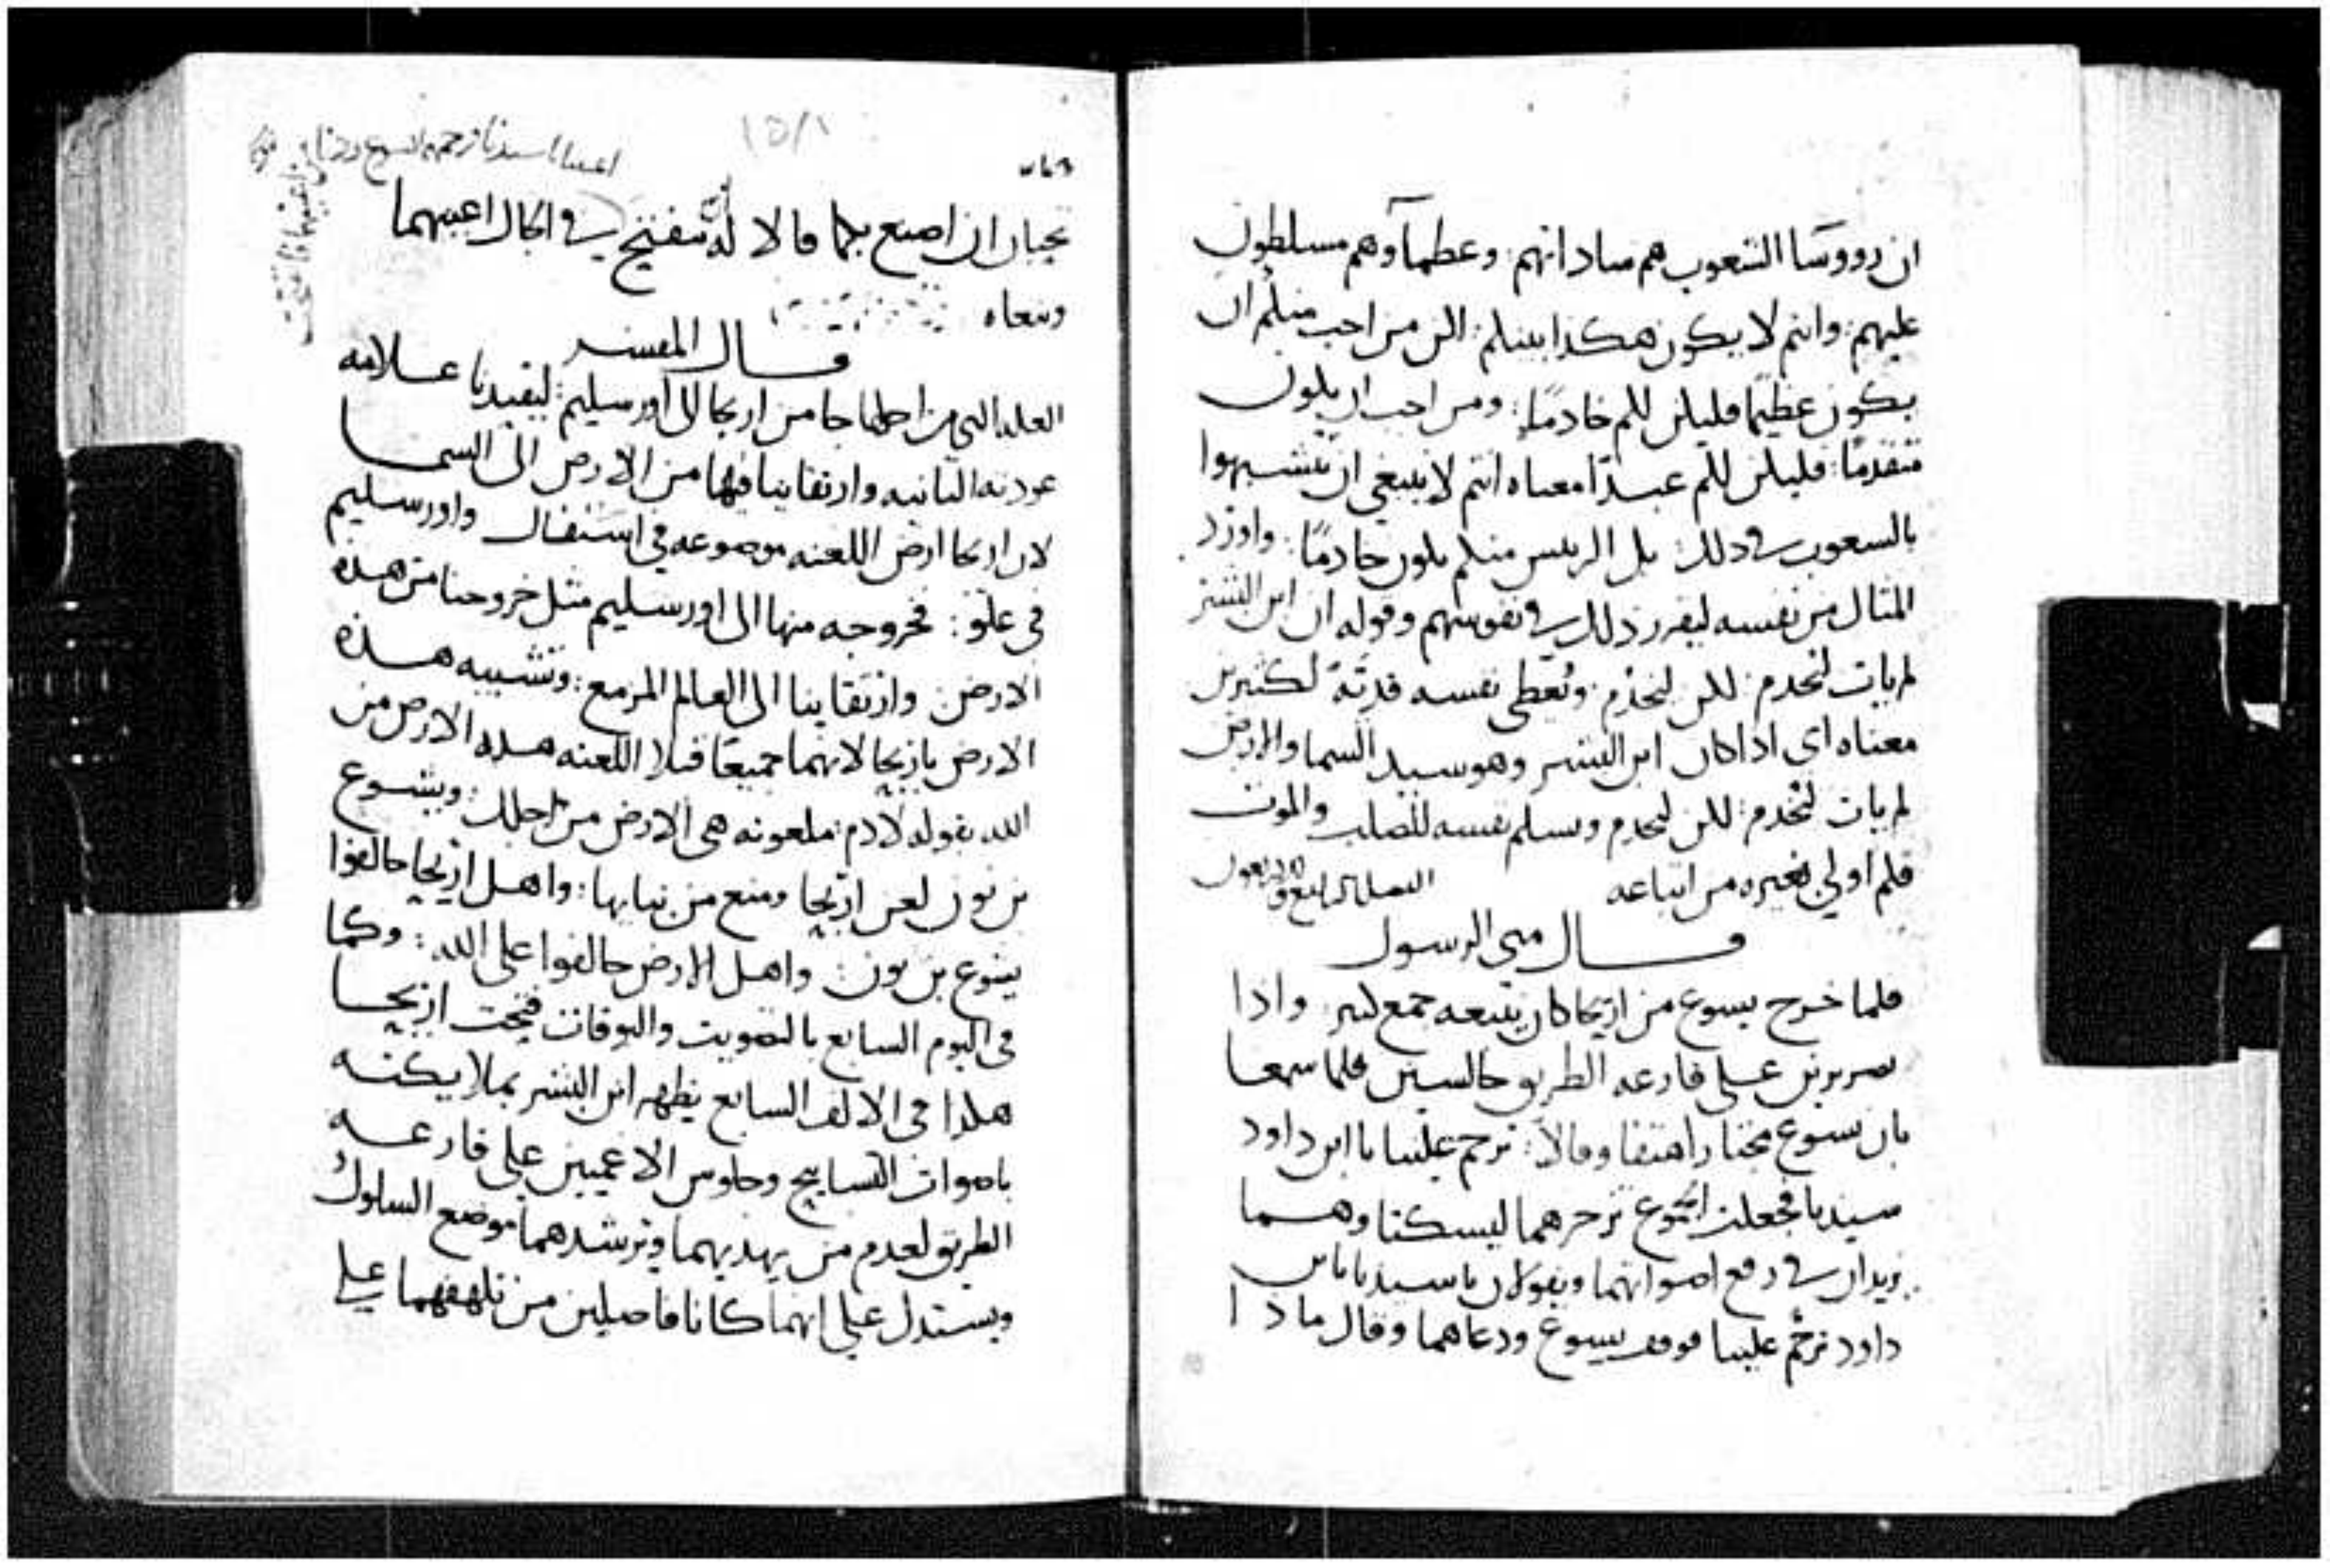 ان رووسا الشعوب هم ساداتهم : وعظمآوهم مسلطون
عليهم : وانتم لا يكون هكذا بينكم : لكن من احب منكم ان
يكون عظيمًا فليكن لكم خادمًا : ومن احب ان يكون
متقدمًا : فليكن لكم عبدًا معناه انتم لا ينبغي ان تتشبهوا
بالشعوب في ذلك : بل الريس منكم يكون خادمًا : واورد
المثال من نفسه ليقرر ذلك في نفوسهم وقوله ان ابن البشر
لم يات ليُخدم : لكن ليَخدُم : ويُعطى نفسه فديَةً لكثيرين
معناه اى اذا كان ابن البشر وهو سيد السما والارض
لم يات ليُخدم : لكن ليخدم ويسلم نفسه للصلب والموت
فكم اولي بغيره من اتباعه الفصل الرابع والاربعون
قــال متى الرسول
فلما خرج يسوع من اريحا كان يتبعه جمع كثير : واذا
بضريرين على قارعه الطريق جالسين فلما سمعا
بان يسوع مجتازا هتفا وقالا : ترحم علينا يا ابن داود
سيدنا فجعلت الجموع تزجرهما ليسكتا وهــما
يزيدان في رفع اصواتهما ويقولان يا سيدنا يا بن
داود ترحَّم علينا فوقف يسوع ودعاهما وقال ماذا
تحبان ان اصنع بكما قالا له ان تنفتح في الحال اعينهما
وتبعاه
قــال المفسر
العله التي من اجلها جا من اريحا الى اورسليم : ليفيدنا عــلامه
عودته الثانيه وارتقاينا فيها من الارض الى السمــا
لان اريحا ارض اللعنه موضوعه في استفال واورسليم
في علو : فخروجه منها الى اورسليم مثل خروجنا من هذه
الارض وارتقاينا الى العالم المزمع : وتشبيه هــذه
الارض باريحا لانهما جميعًا قبلا اللعنه هذه الارض من
الله بقوله لادم : ملعونه هى الارض من اجلك : ويشوع
بن نون لعن اريحا ومنع من بنايها : واهل اريحا خالفوا
يشوع بن نون : واهل الارض خالفوا على الله : وكما
في اليوم السابع بالتصويت والبوقات فتحت اريحــا
هكذا في الالف السابع يظهر ابن البشر بملايكتــه
باصوات التسابيح وجلوس الاعميين على قارعــه
الطريق لعدم من يهديهما ويرشدهما موضع السلوك
ويستدل على انهما كانا فاضلين من تلهفهما على